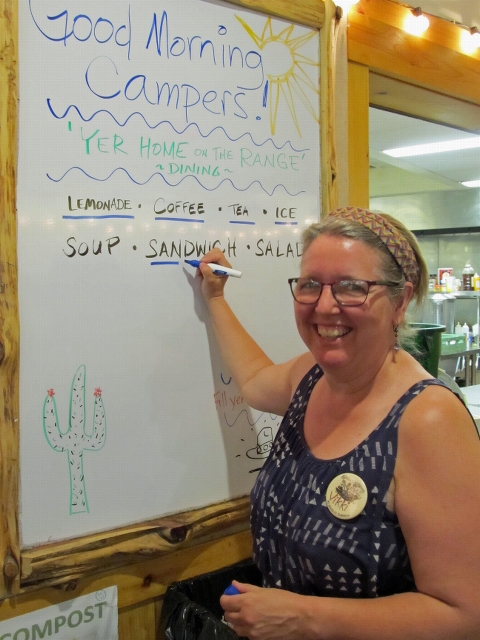 Good Morning
Campers!
'YER HOME ON THE RANGE'
~DINING~
LEMONADE · COFFEE · TEA · ICE
SOUP · SANDWICH · SALAD
Fill yer
VIKKI
COMPOST